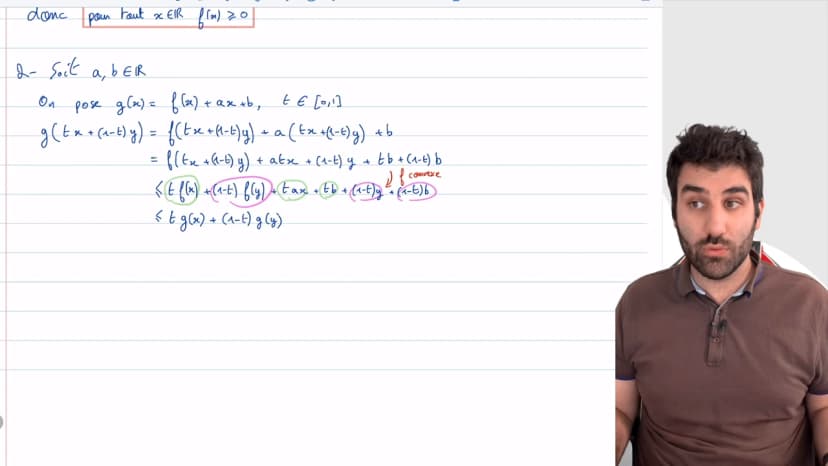 donc pour tout x ∈ ℝ f(x) ⩾ 0
2- Soit a, b ∈ ℝ
On pose g(x) = f(x) + ax + b, t ∈ [0,1]
g(tx + (1-t)y) = f(tx + (1-t)y) + a(tx + (1-t)y) + b
= f(tx + (1-t)y) + atx + (1-t)y + tb + (1-t)b
f convexe
⩽ t f(x) + (1-t) f(y) + tax + tb + (1-t)y + (1-t)b
⩽ t g(x) + (1-t) g(y)